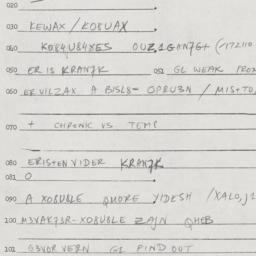 020
030 KEWAX / KO8UAX
040 KO84U84XES OUZ,1GAN7G+ (/172110
050 ER IS KRANZK 051 GL WEAK FROM
060 ERVILZAX A BISL8- OPRU3N / MISTTO,
070 + CHRONIC VS TEMP
080 ERISTEN VIDER KRANZK
081 O
090 A XOBUBLE QMORE YIDESH /XALO,J1
100 M3VAK73R-XOBUBLE ZAJN QHEB
101 G3VOR VERN GL FIND OUT